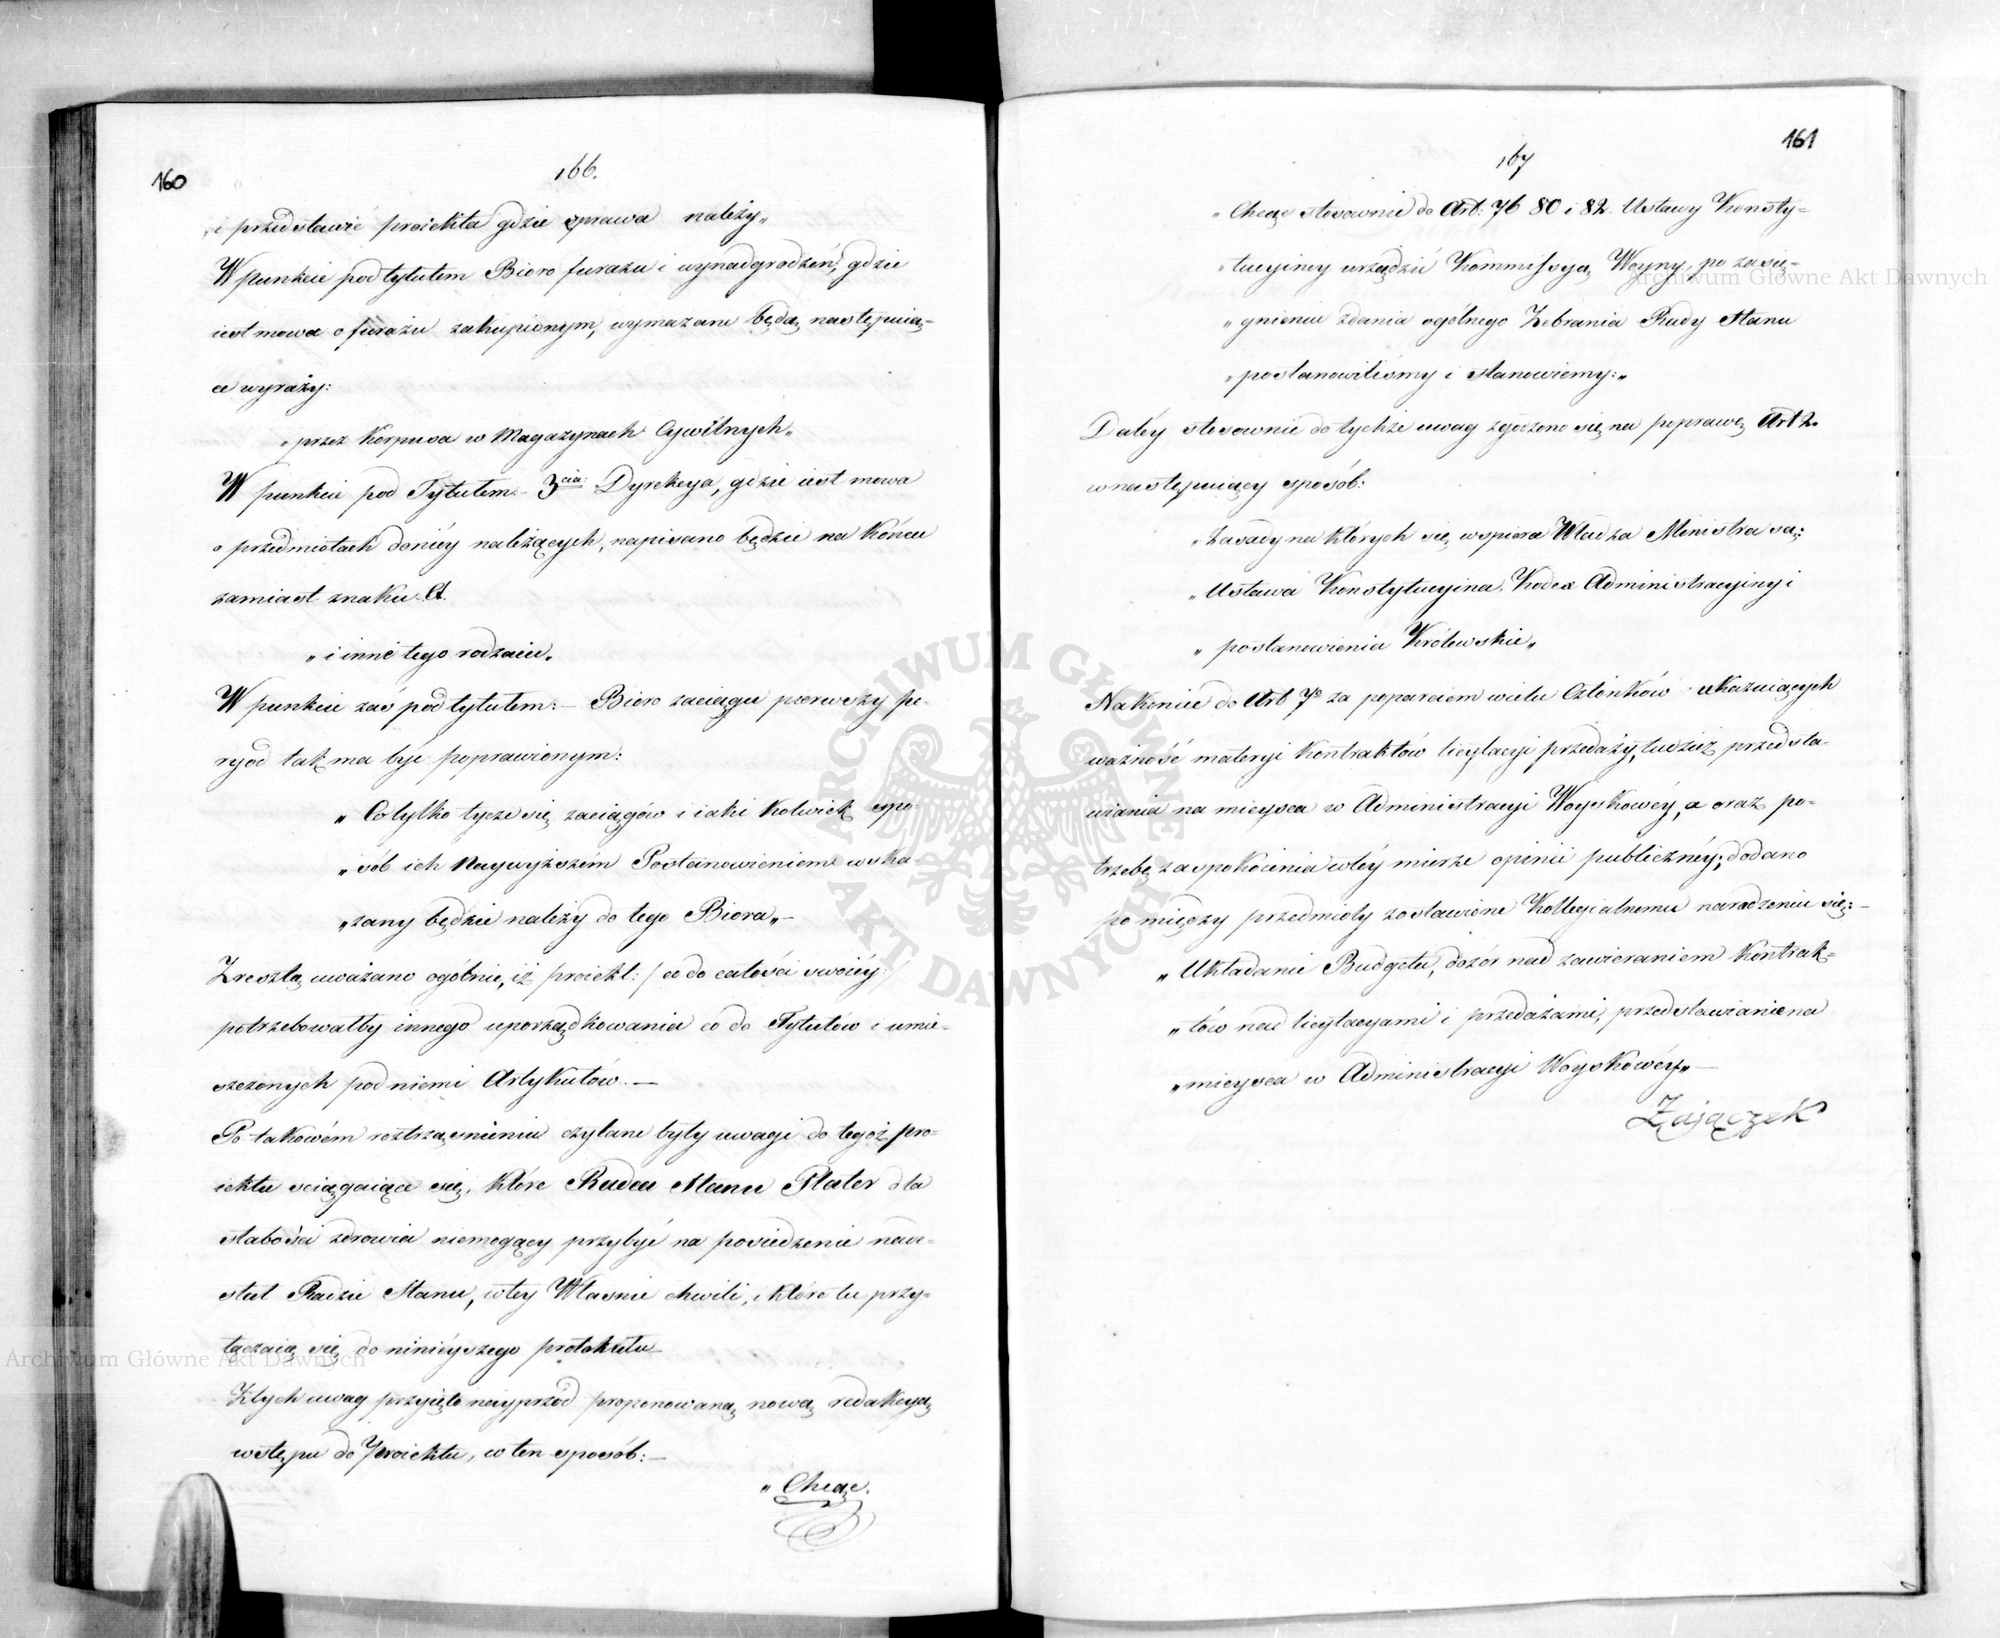 160
166.
„i przedstawić proiekta gdzie sprawa należy„
W punkcie pod tytułem Bioro furażu i wynadgrodzeń, gdzie
iest mowa o furażu zakupionym, wymazane będą następuią-
ce wyrazy:
„przez Korpusa w Magazynach Cywilnych„
W punkcie pod Tytułem:- 3cia: Dyrekcya, gdzie iest mowa
o przedmiotach doniéy należących, napisano będzie na Końcu
zamiast znaku &.
„i inne tego rodzaiu„
W punkcie zaś pod tytułem:- Bioro zaciągu pierwszy pe-
ryod tak ma być poprawionym:
„Co tylko tycze się zaciągów i iaki Kolwiek spo-
„sób ich Naywyższem Postanowieniem wska
„zany będzie należy do tego Biora„-
Zresztą uważano ogólnie, iż proiekt: /co do całości swoiéy:/
potrzebowałby innego uporządkowania co do Tytułów i umie-
szczonych pod niemi Artykułów.-
Po takowém roztrząśnieniu czytane były uwagi do tegoż pro-
iektu sciągaiące się, Które Radca Stanu Plater dla
słabości zdrowia niemogący przybyć na posiedzenie nade-
słał Radzie Stanu, w tey Własnie chwili, i Które tu przy-
łączaią się do ninieyszego protokułu-
Z tych uwag przyięto nayprzód proponowaną nową redakcyą
wstępu do Proiektu, w ten sposób:-
„Chcąc.
161
167
„Chcąc stosownie do Art: 76 80 i 82. Ustawy Konsty-
„tucyiney urządzić Kommissyą Woyny, po zasią-
„gnieniu zdania ogólnego Zebrania Rady Stanu
„postanowiliśmy i stanowiemy:„
Daléy stosownie do tychże uwag zgodzono się na poprawę Art 2.
w następuiący sposób:
„Zasady na Których się wspiera Władza Ministra są:
„Ustawa Konstytucyina, Kodex Administracyiny i
„postanowienia Królewskie„
Nakoniec do Art 7o za poparciem wielu Członków ukazuiących
ważność materyi Kontraktów licytacyi przedaży, tudzież przedsta-
wiania na mieysca w Administracyi Woyskowéy, a oraz po-
trzebę zaspokoienia w téy mierze opinii publicznéy; dodano
pomiędzy przedmioty zostawione Kollegialnemu naradzeniu się:-
„Układanie Budgetu, dozór nad zawieraniem Kontrak-
„tów nad licytacyami i przedażami, przedstawianie na
„mieysca w Administracyi Woyskowéy„-
Zajączek
Archiwum Główne Akt Dawnych
Archiwum Główne Akt Dawnych
ARCHIWUM GŁÓWNE AKT DAWNYCH